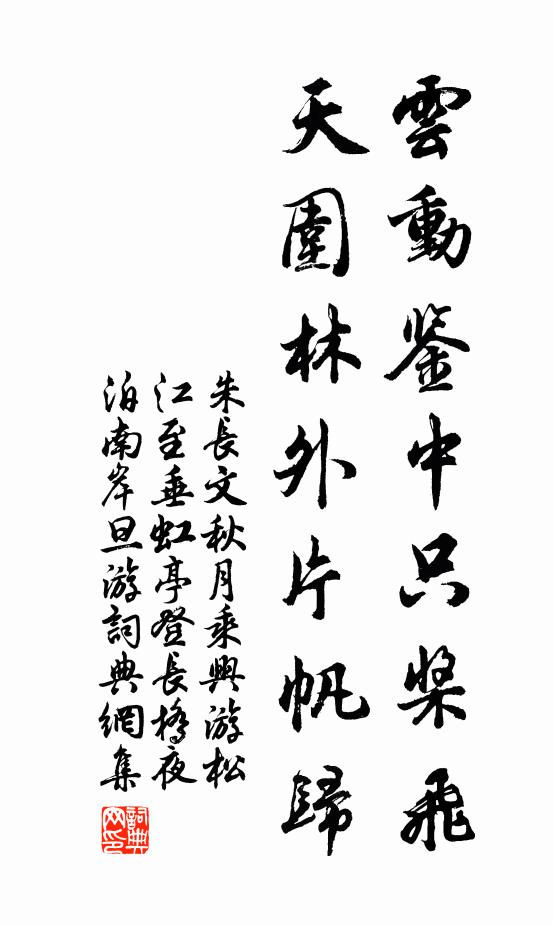 雲動鉴中只桨飛
天圍林外片帆歸
朱長文秋月乘興游松
江至垂虹亭登長橋夜
泊南岸旦游詞典網集
詞典
网印